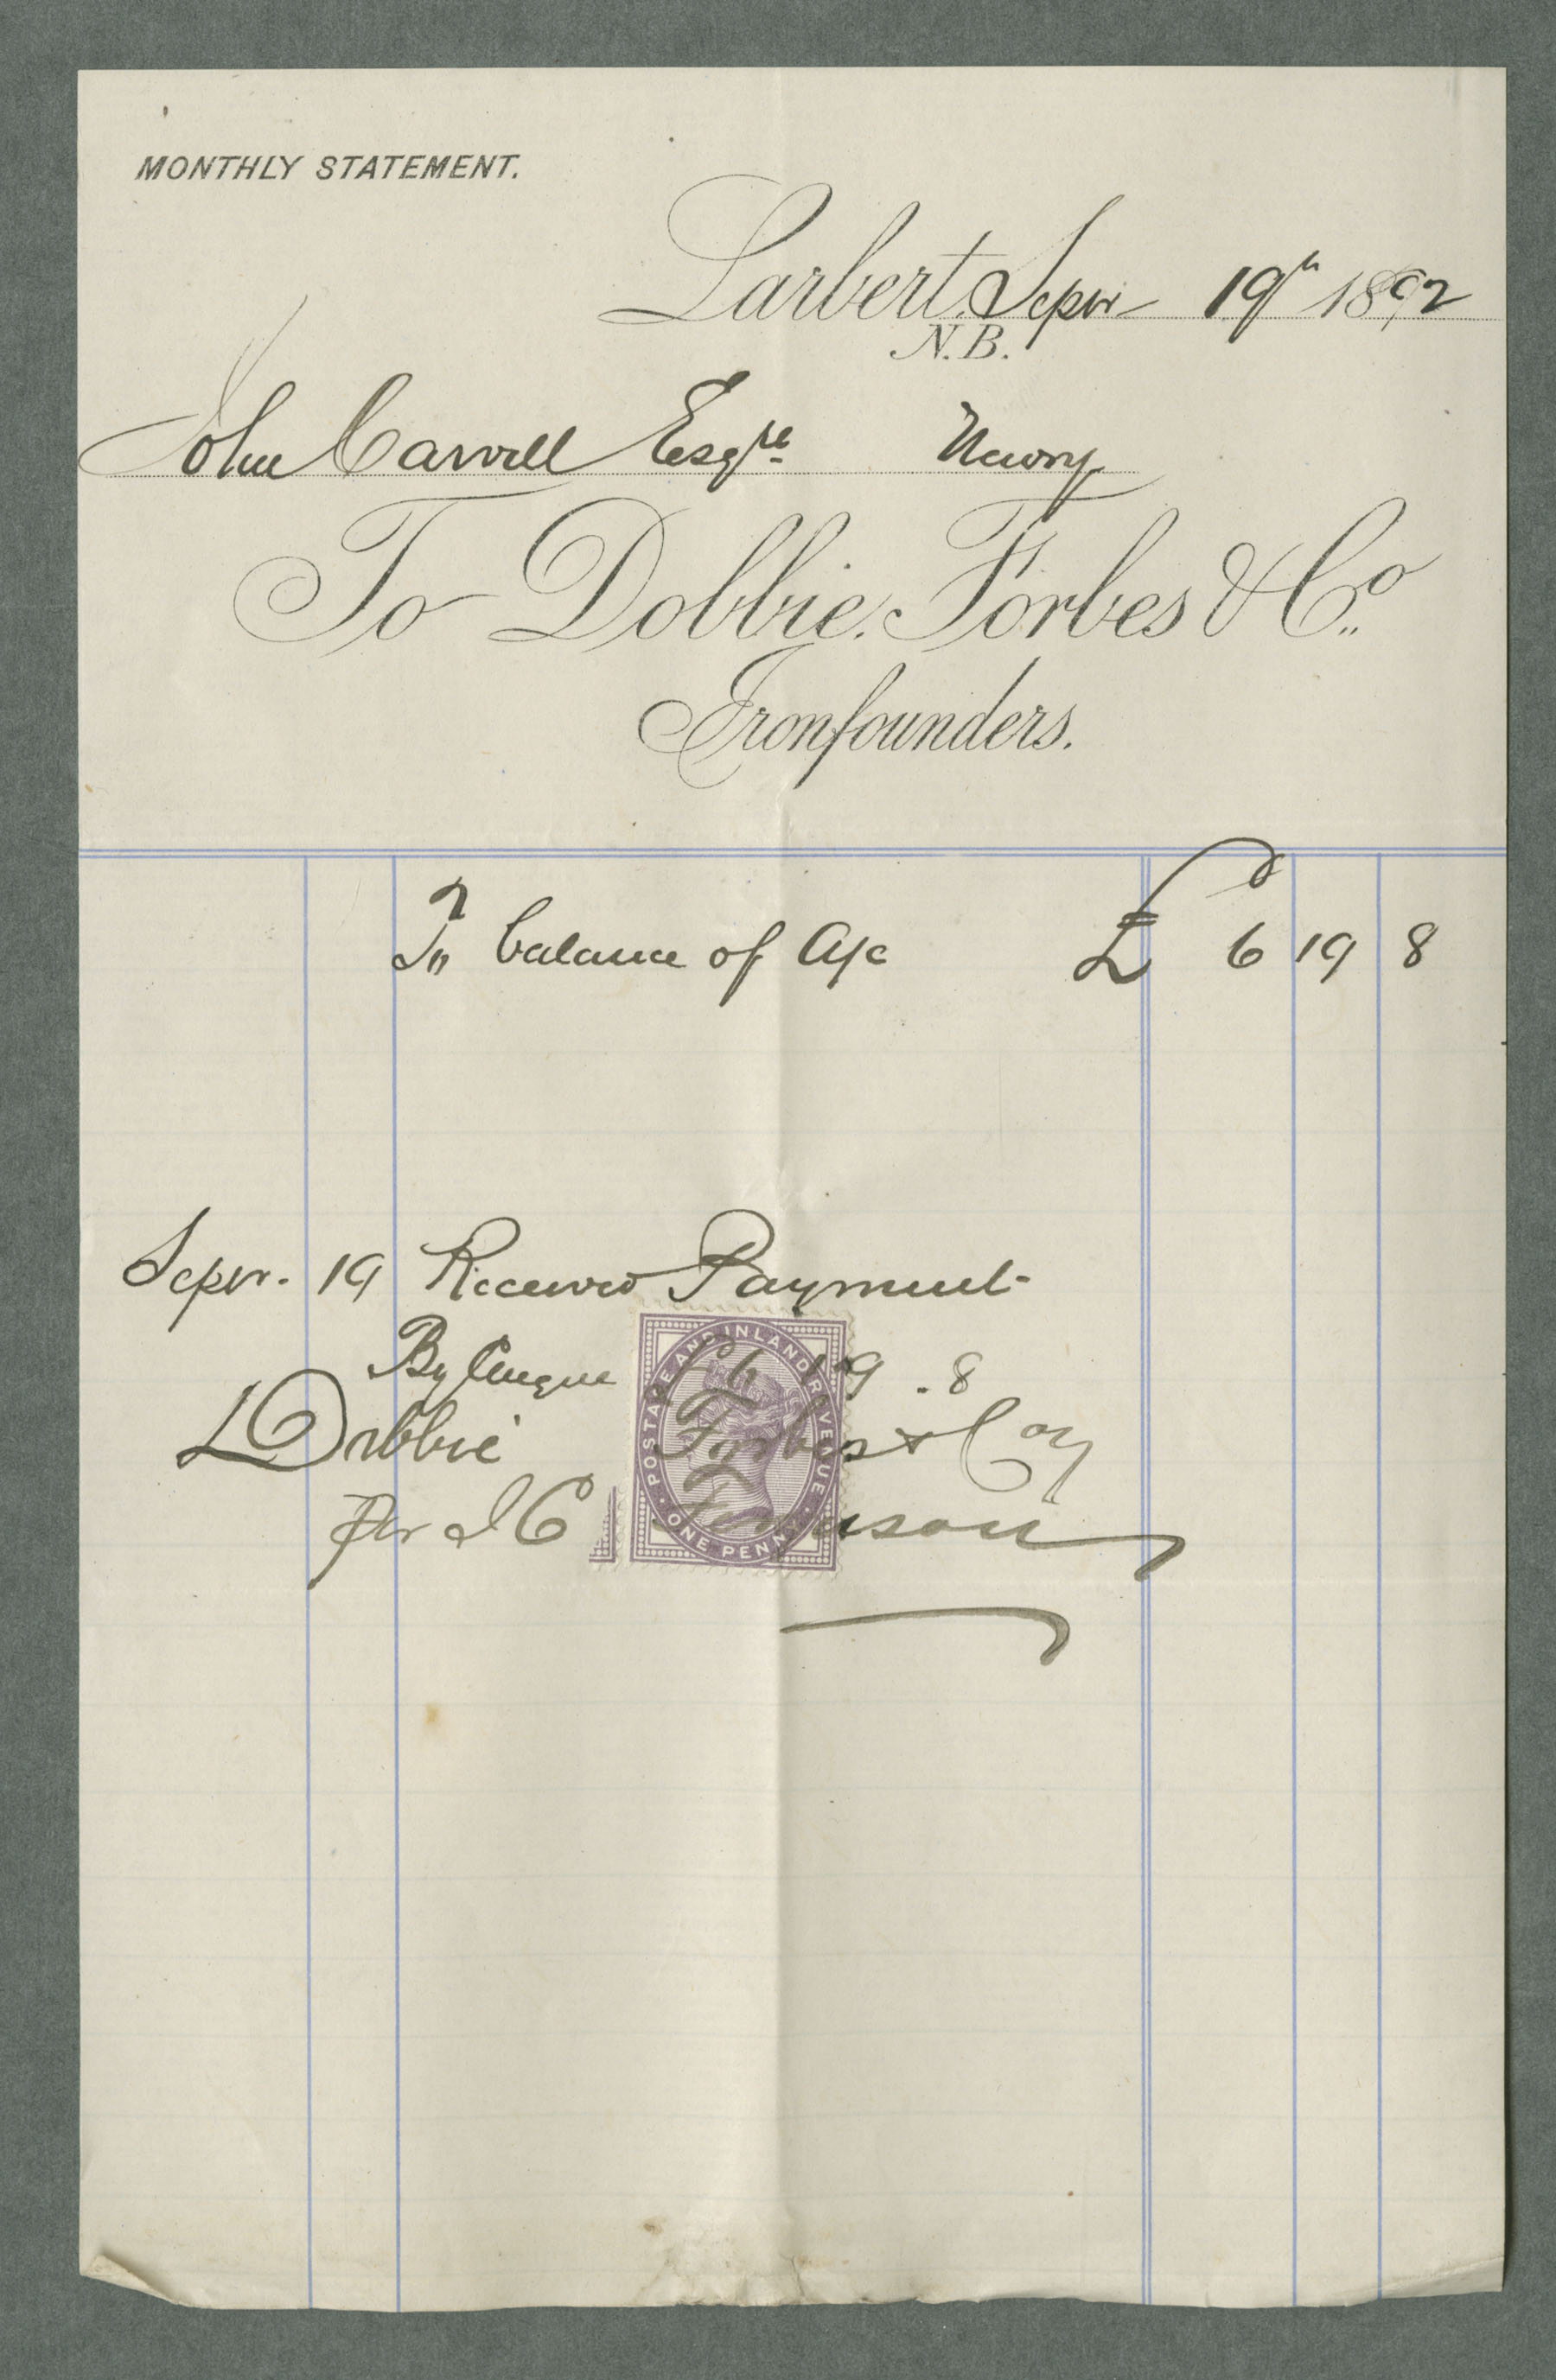 MONTHLY STATEMENT.
Larbert, Sepr 19th 1892
N.B.
John Carvill Esqre Newry
To Dobbie, Forbes & Co.,
Ironfounders.
To balance of A/c £ 6 19 8
Sepr. 19 Received Payment
By Cheque £6 19 . 8
Dobbie Forbes & Coy
per J C Ferguson
POSTAGE AND INLAND REVENUE
ONE PENNY